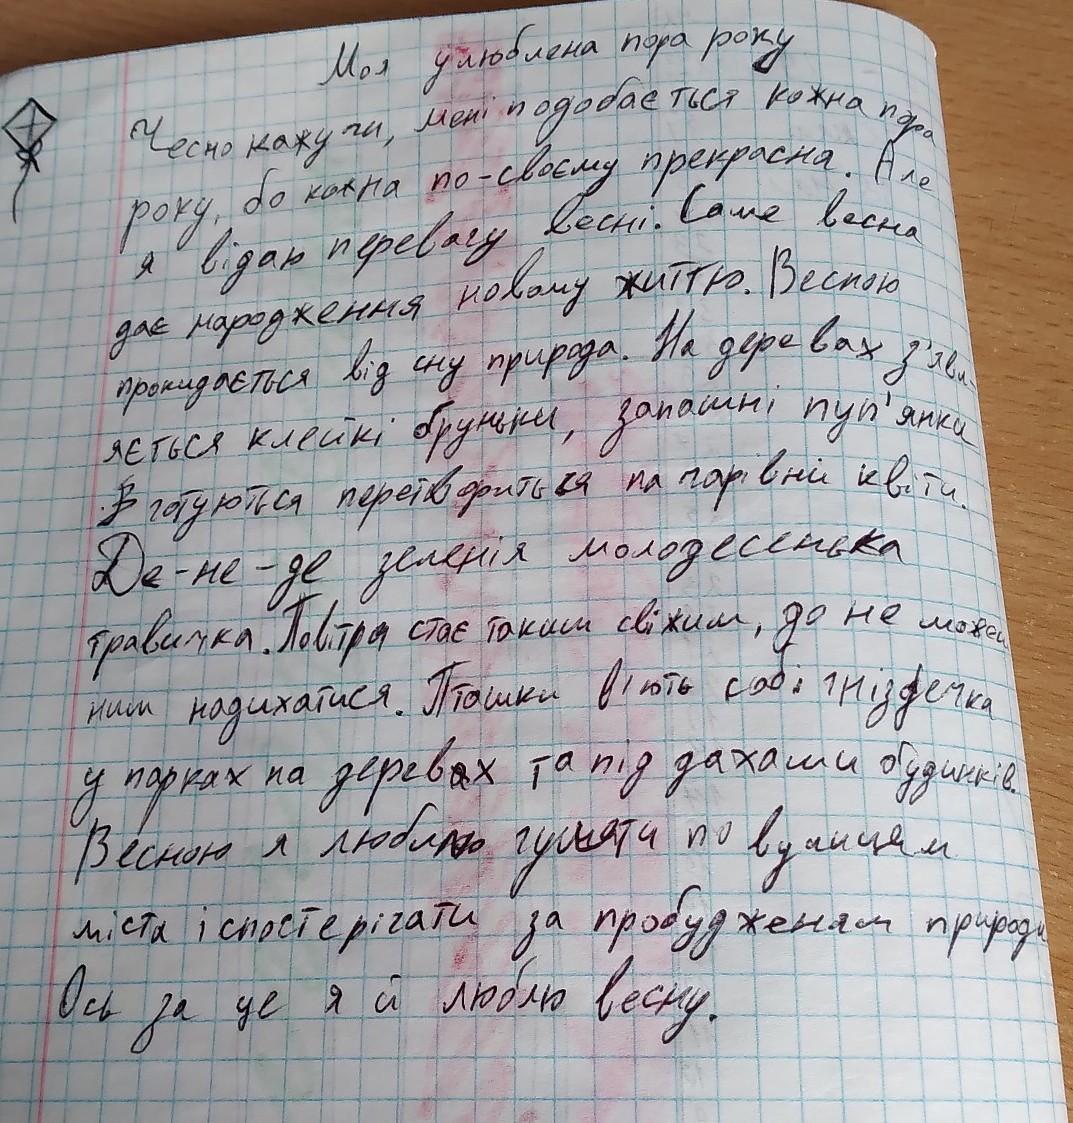 Моя улюблена пора року
Чесно кажучи, мені подобається кожна пора
року, бо кожна по-своєму прекрасна. Але
я відаю перевагу весні. Саме весна
дає народження новому життю. Весною
прокидається від сну природа. На деревах з'явл-
яється клейкі бруньки, запашні пуп'янки
готуються перетвориться на чарівні квіти.
Де-не-де зеленія молодесенька
травичка. Повітря стає таким свіжим, до не можеш
ним надихатися. Пташки в'ють собі гніздечка
у парках на деревах та під дахами будинків.
Весною я люблю гуляти по вулицям
міста і спостерігати за пробудженям природи
Ось за це я й люблю весну.